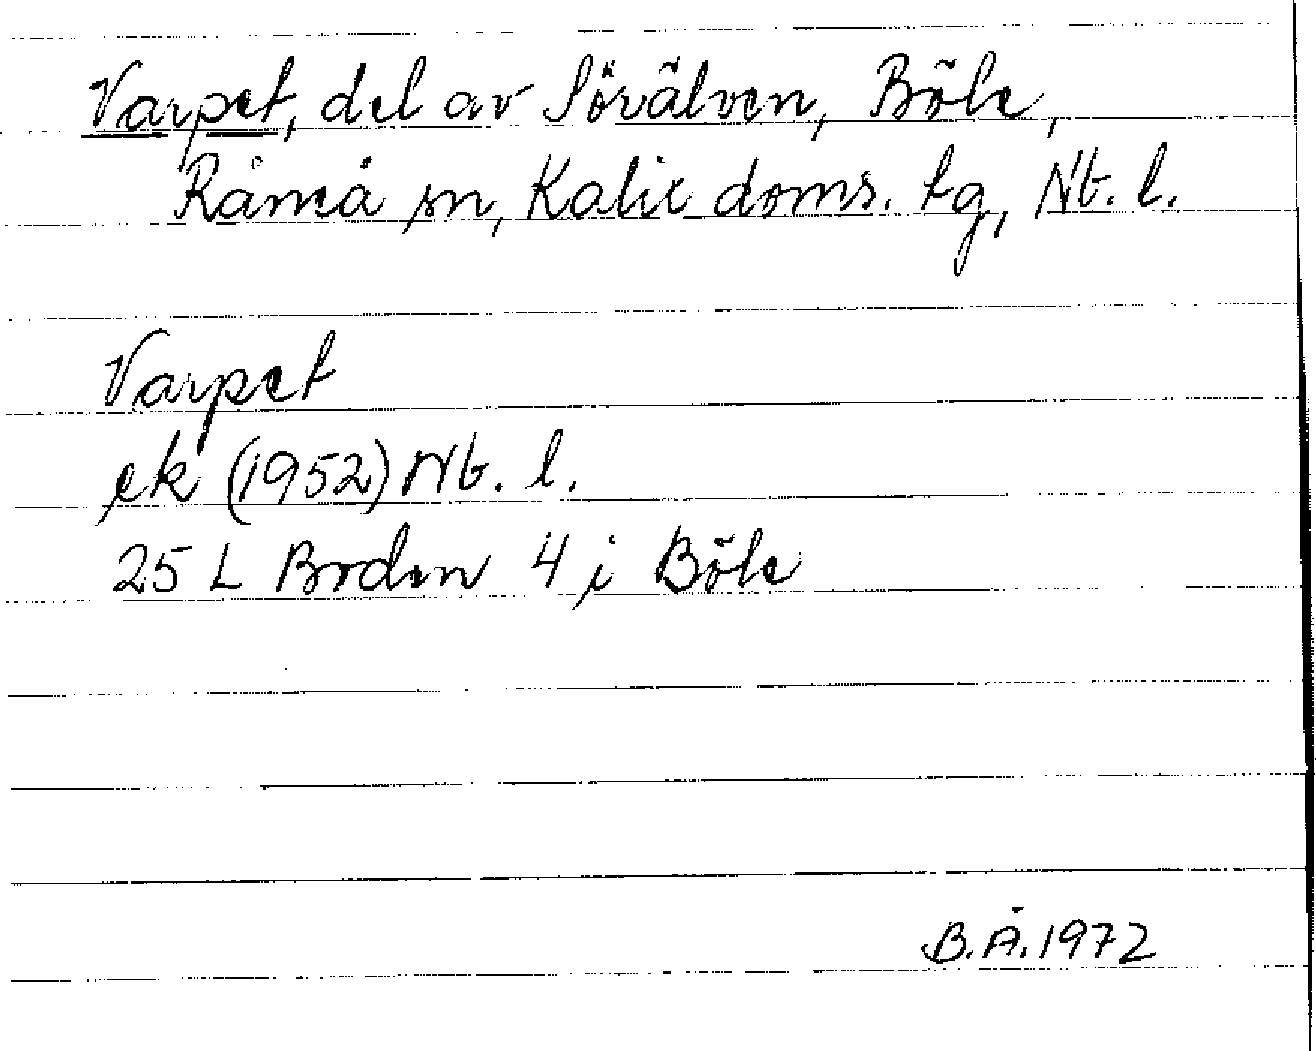 Varpet, del av Sörälven, Böle,
Råneå sn, Kalix doms. tg, Nb. l.
Varpet
ek (1952) Nb. l.
25 L Boden 4 i Böle
B.Å.1972